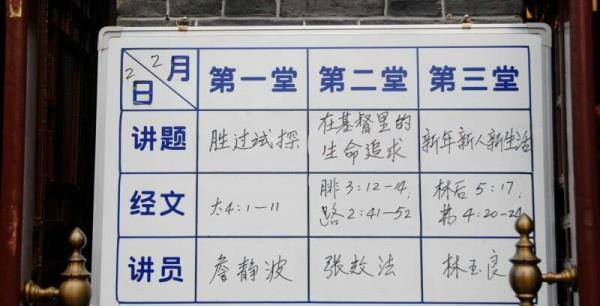 2 2 月 日 第一堂 第二堂 第三堂
讲题 胜过试探 在基督里的 新年新人新生活
生命追求
经文 太4:1-11 腓3:12-14 林后5:17,
路2:41-52 弗4:20-24
讲员 詹静波 张效法 林玉良